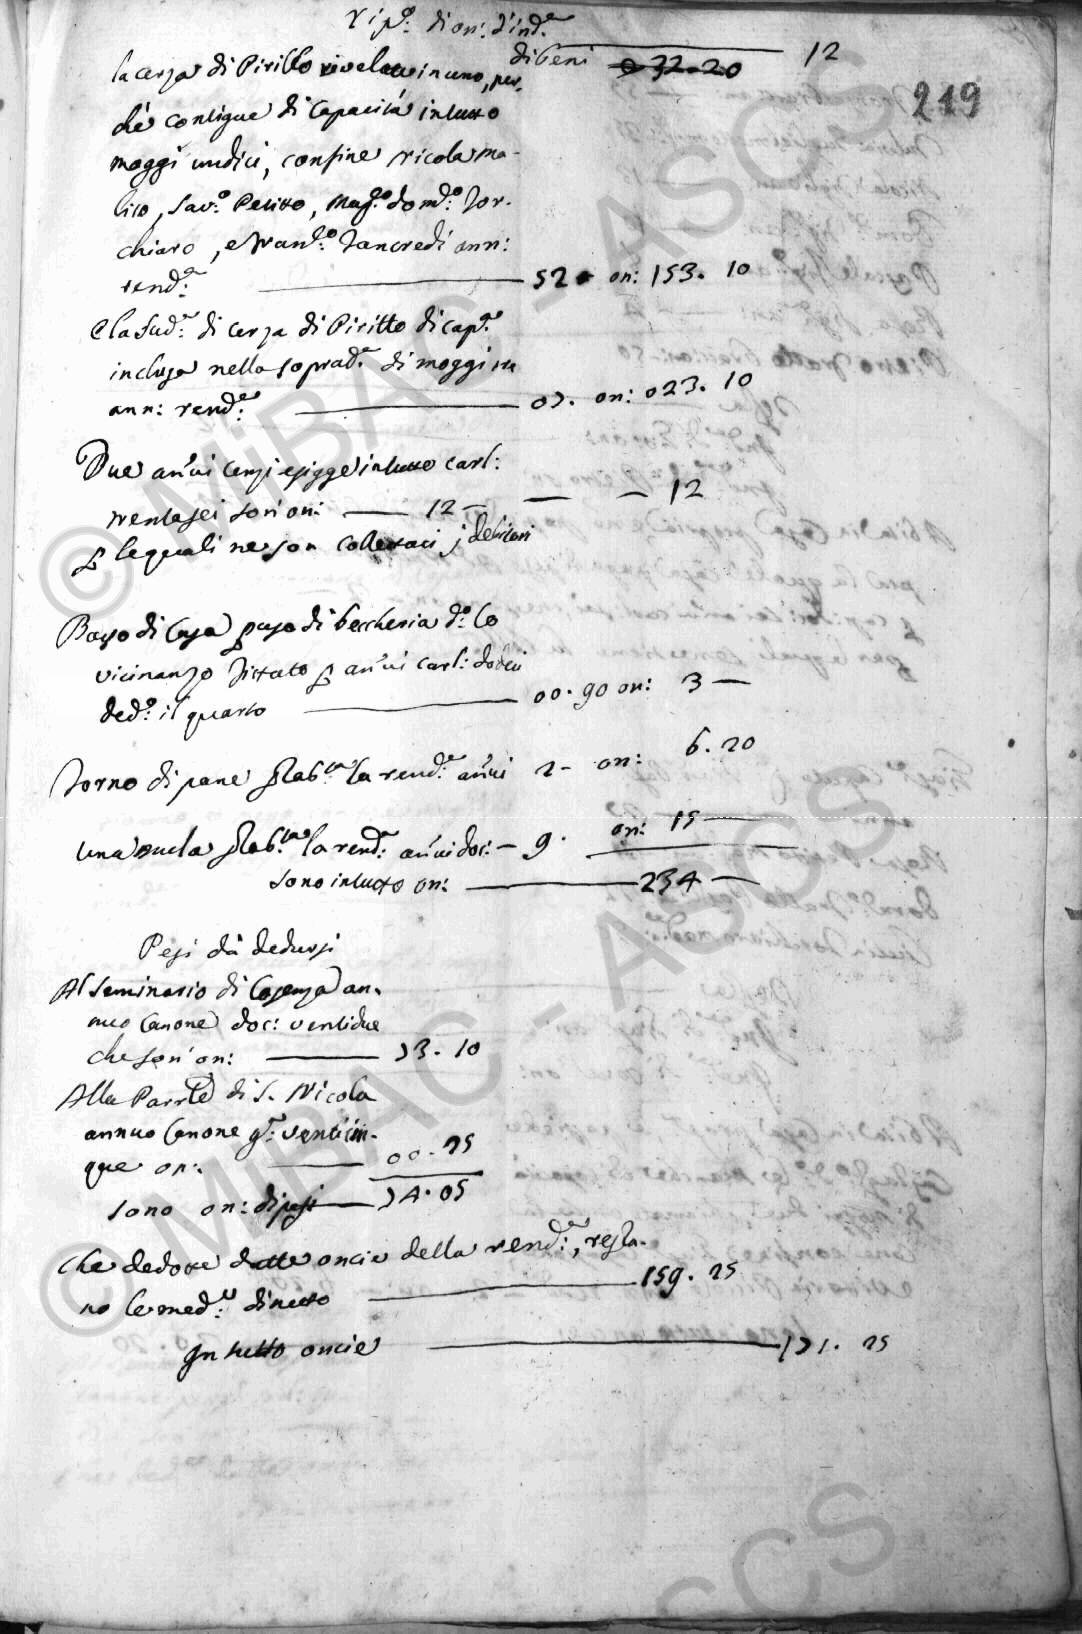 Rip.o di on: d'ind.a 12
di beni 32-20
219
la cerza di Pirillo rivelate in uno, per-
chè contigue di capacità in tutto
moggi undici, confine Nicola Ma-
lito, Sav.o Petitto, Mag.o Dom.o Tor-
chiaro, e Fran.o Tancredi ann:
rend.a 52 on: 153. 10
E la sud.a di cerza di Piritto di cap.tà
inclusa nella soprad.a di moggi
ann: rend.a 07. on: 023. 10
Due annui censi esigge in tutto carl:
trentasei son on: 12 - 12
le quali ne son collettati i debitori
Basso di casa p uso di beccheria d.o lo
vicinanzo fittato p annui carl: dodeci
ded.o il quarto 00. 90 on: 3
Forno di pane la rend.a annui 2 - on: 6. 20
Una mula la rend.a annui doc: - 9. on: 15
sono in tutto on: 234
Pesi da dedursi
Al Seminario di Cosenza an-
nuo canone doc: ventidue
che son on: 73. 10
Alla Parrle di S. Nicola
annuo canone g.a venticin-
que on: 00. 25
sono on: di pesi 74. 05
Che dedotte dette oncie della rend.a, resta-
no le med.e di netto 159. 25
In tutto oncie 171. 25
© MiBAC - ASCS
© MiBAC - ASCS
ASCS